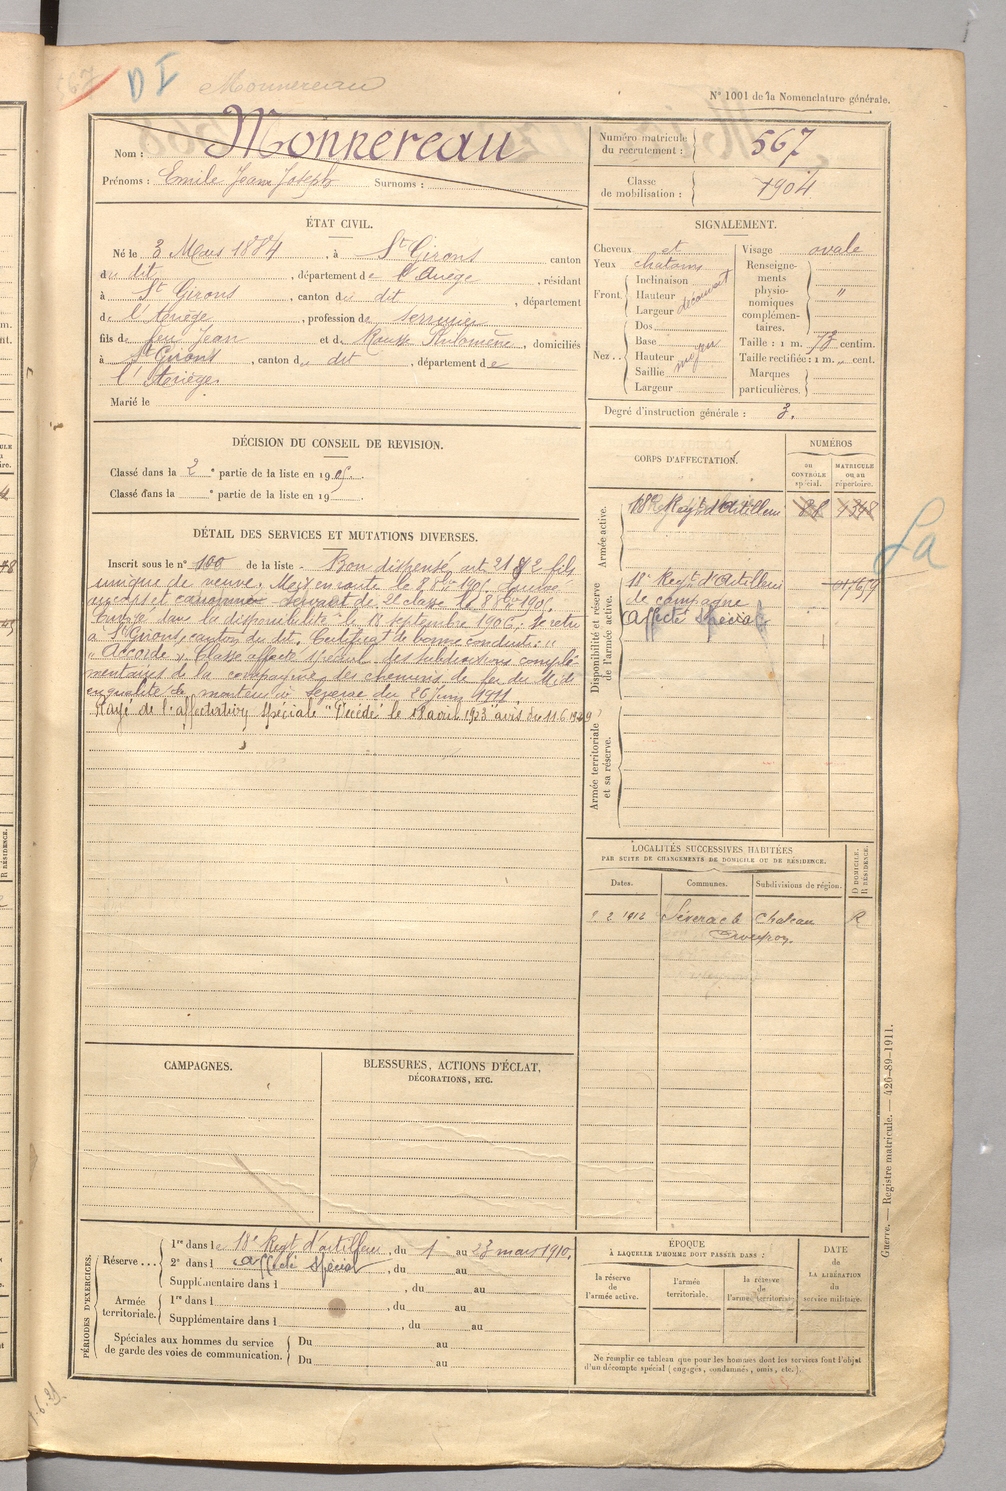 567 D I Monnereau
N° 1001 de la Nomenclature générale.
Nom : Monnereau
Prénoms : Emile Jean Joseph Surnoms :
Numéro matricule du recrutement : 567
Classe de mobilisation : 1904
ÉTAT CIVIL.
Né le 3 Mars 1884, à St Girons canton
du dit, département de l'Ariège, résidant
à St Girons, canton du dit, département
de l'Ariège, profession de serrurier
fils de feu Jean et de Philomène, domiciliés
à St Girons, canton du dit, département de
l'Ariège.
Marié le
SIGNALEMENT.
Cheveux et
Yeux chatains
Front. Inclinaison
Hauteur découvert
Largeur
Nez. Dos
Base
Hauteur moyen
Saillie
Largeur
Visage ovale
Renseignements physionomiques complémentaires. "
Taille : 1 m. 73 centim.
Taille rectifiée : 1 m. " cent.
Marques particulières.
Degré d'instruction générale : 3.
DÉCISION DU CONSEIL DE REVISION.
Classé dans la 2e partie de la liste en 1905.
Classé dans la e partie de la liste en 19 .
DÉTAIL DES SERVICES ET MUTATIONS DIVERSES.
Inscrit sous le n° 100 de la liste - Bon dispensé art 21 § 2 fils
unique de veuve. Mis en route le 8 1905.
au corps et canonnier servant de 2e classe le 8 1905.
dans la disponibilité le 18 septembre 1906; se retire
à St Girons, canton du dit. Certificat de bonne conduite : "
" Accordé ". Classé affecté spécial des subdivisions complé-
mentaires de la compagnie des chemins de fer du Midi
en qualité de monteur à Séverac du 26 Juin 1911.
Rayé de l'affectation spéciale "Décédé" le 18 avril 1923 avis du 11.6.1929
CORPS D'AFFECTATION.
NUMÉROS
au CONTROLE spécial.
MATRICULE ou au répertoire.
Armée active.
18e Regt d'Artillerie 1348
Disponibilité et réserve de l'armée active.
18e Regt d'Artillerie
de campagne
Affecté spécial
Armée territoriale et sa réserve.
La
LOCALITÉS SUCCESSIVES HABITÉES
PAR SUITE DE CHANGEMENTS DE DOMICILE OU DE RÉSIDENCE.
Dates. Communes. Subdivisions de région. D DOMICILE. R RÉSIDENCE.
2 1912 Séverac le Chateau R
Aveyron.
CAMPAGNES.
BLESSURES, ACTIONS D'ÉCLAT,
DÉCORATIONS, ETC.
PÉRIODES D'EXERCICES.
Réserve... 1re dans le 18e Regt d'artillerie, du 1er au 23 mars 1910.
2e dans l affecté spécial, du au
Supplémentaire dans l , du au
Armée territoriale. 1re dans l , du au
Supplémentaire dans l , du au
Spéciales aux hommes du service
de garde des voies de communication. Du au
Du au
ÉPOQUE
À LAQUELLE L'HOMME DOIT PASSER DANS :
la réserve de l'armée active.
l'armée territoriale.
la réserve de l'armée territoriale
DATE de LA LIBÉRATION du service militaire.
Ne remplir ce tableau que pour les hommes dont les services font l'objet
d'un décompte spécial (engagés, condamnés, omis, etc.).
Guerre. — Registre matricule. — 426-89-1911.